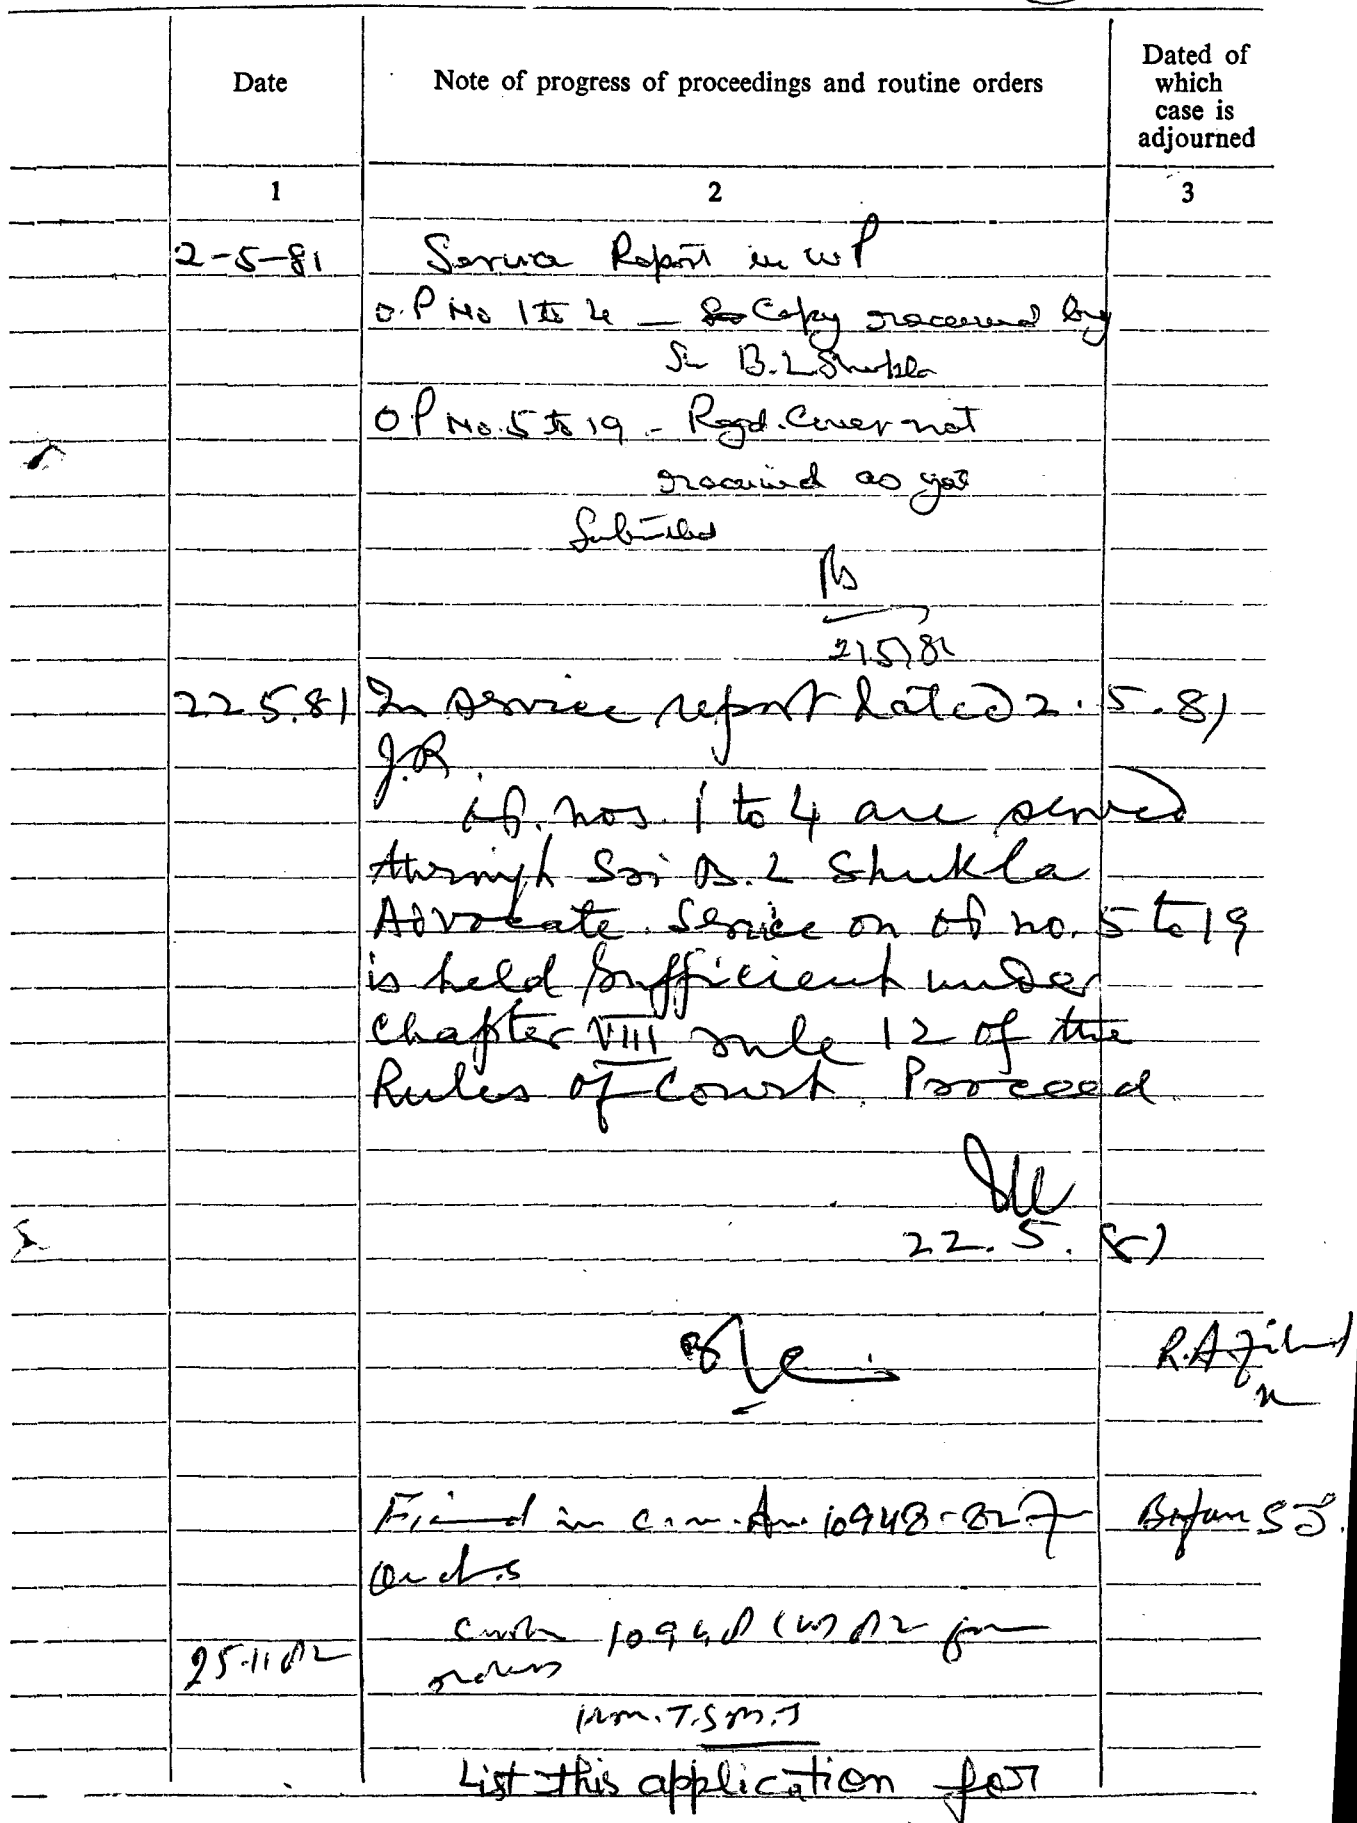 Date
Note of progress of proceedings and routine orders
Dated of
which
case is
adjourned
1
2
3
2-5-81 Service Report in WP
O.P No 1 to 4 — Copy received by
Sri B.L Shukla
O P No. 5 to 19 - Regd. Cover not
received as yet
Submitted
21/5/81
22.5.81 In service report dated 2.5.81
J.R
op. nos. 1 to 4 are served
through Sri B.L Shukla
Advocate. Service on op no. 5 to 19
is held sufficient under
Chapter VIII rule 12 of the
Rules of Court. Proceed
22.5.81
in 10948-82
orders
25.11.82 10948 (W) 82 for
orders
List this application for